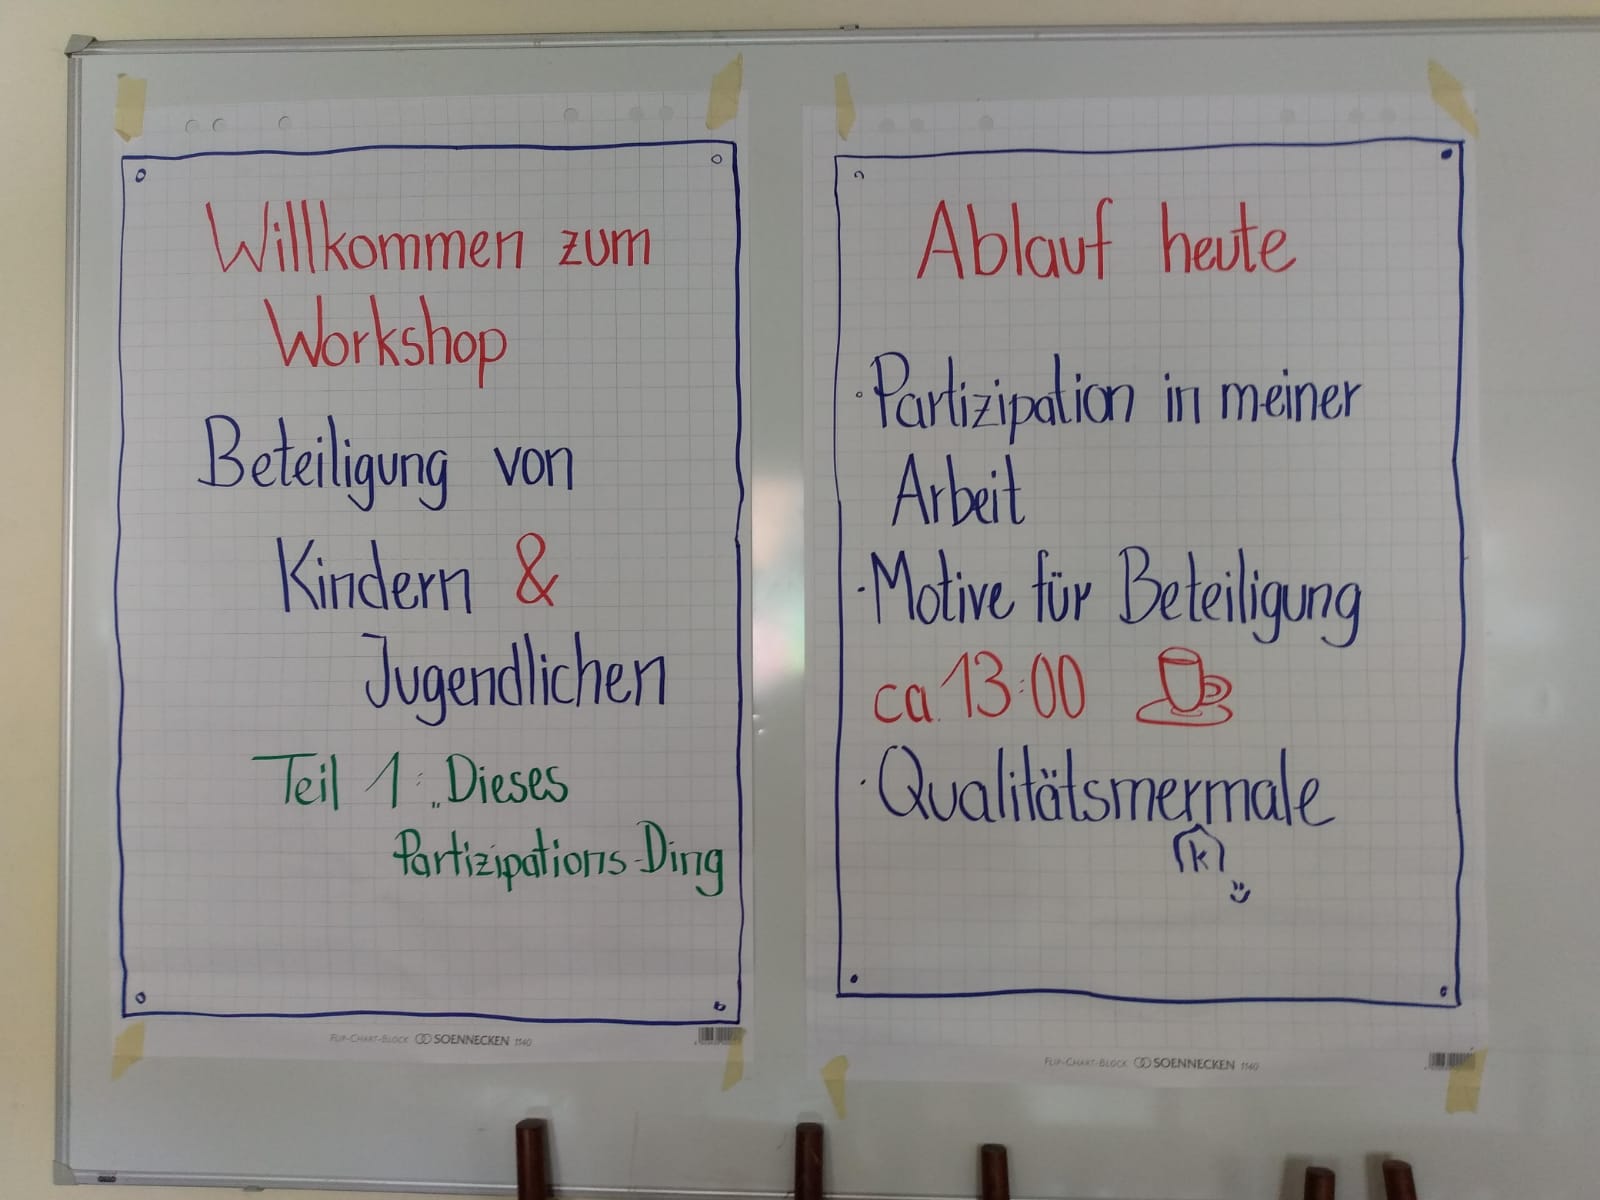 Willkommen zum
Workshop
Beteiligung von
Kindern &
Jugendlichen
Teil 1: „Dieses
Partizipations-Ding
FLIP-CHART-BLOCK SOENNECKEN 1140
Ablauf heute
· Partizipation in meiner
Arbeit
· Motive für Beteiligung
ca. 13:00
· Qualitätsmermale
(k)
FLIP-CHART-BLOCK SOENNECKEN 1140